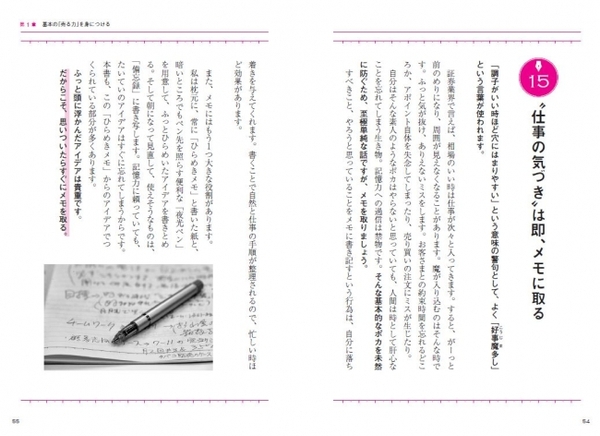 第1章　基本の「売る力」を身につける
15
“仕事の気づき”は即、メモに取る
「調子がいい時ほど穴にはまりやすい」という意味の警句として、よく「好事魔多し」
という言葉が使われます。
証券業界で言えば、相場のいい時は仕事が次々と入ってきます。すると、がーっと
前のめりになり、周囲が見えなくなることがあります。魔が入り込むのはそんな時で
す。ふっと気が抜け、ありえないミスをします。お客さまとの約束時間を忘れるどこ
ろか、アポイント自体を失念してしまったり、売り買いの注文にミスが生じたり。
自分はそんな素人のようなポカはやらないと思っていても、人間は時として肝心な
ことを忘れてしまう生き物。記憶力への過信は禁物です。そんな基本的なポカを未然
に防ぐため、至極単純な話ですが、メモを取りましょう。
すべきこと、やろうと思っていることをメモに書き記すという行為は、自分に落ち
54
着きを与えてくれます。書くことで自然と仕事の手順が整理されるので、忙しい時ほ
ど効果があります。
また、メモにはもう一つ大きな役割があります。
私は枕元に、常に「ひらめきメモ」と書いた紙と、
暗いところでもペン先を照らす便利な「夜光ペン」
を用意して、ふっとひらめいたアイデアを書きとめ
る。そして朝になって見直して、使えそうなものは、
「備忘録」に書き写します。記憶力に頼っていても、
たいていのアイデアはすぐに忘れてしまうからです。
本書も、この「ひらめきメモ」からのアイデアでつ
くられている部分が多くあります。
ふっと頭に浮かんだアイデアは貴重です。
だからこそ、思いついたらすぐにメモを取る。
チームワーク
55